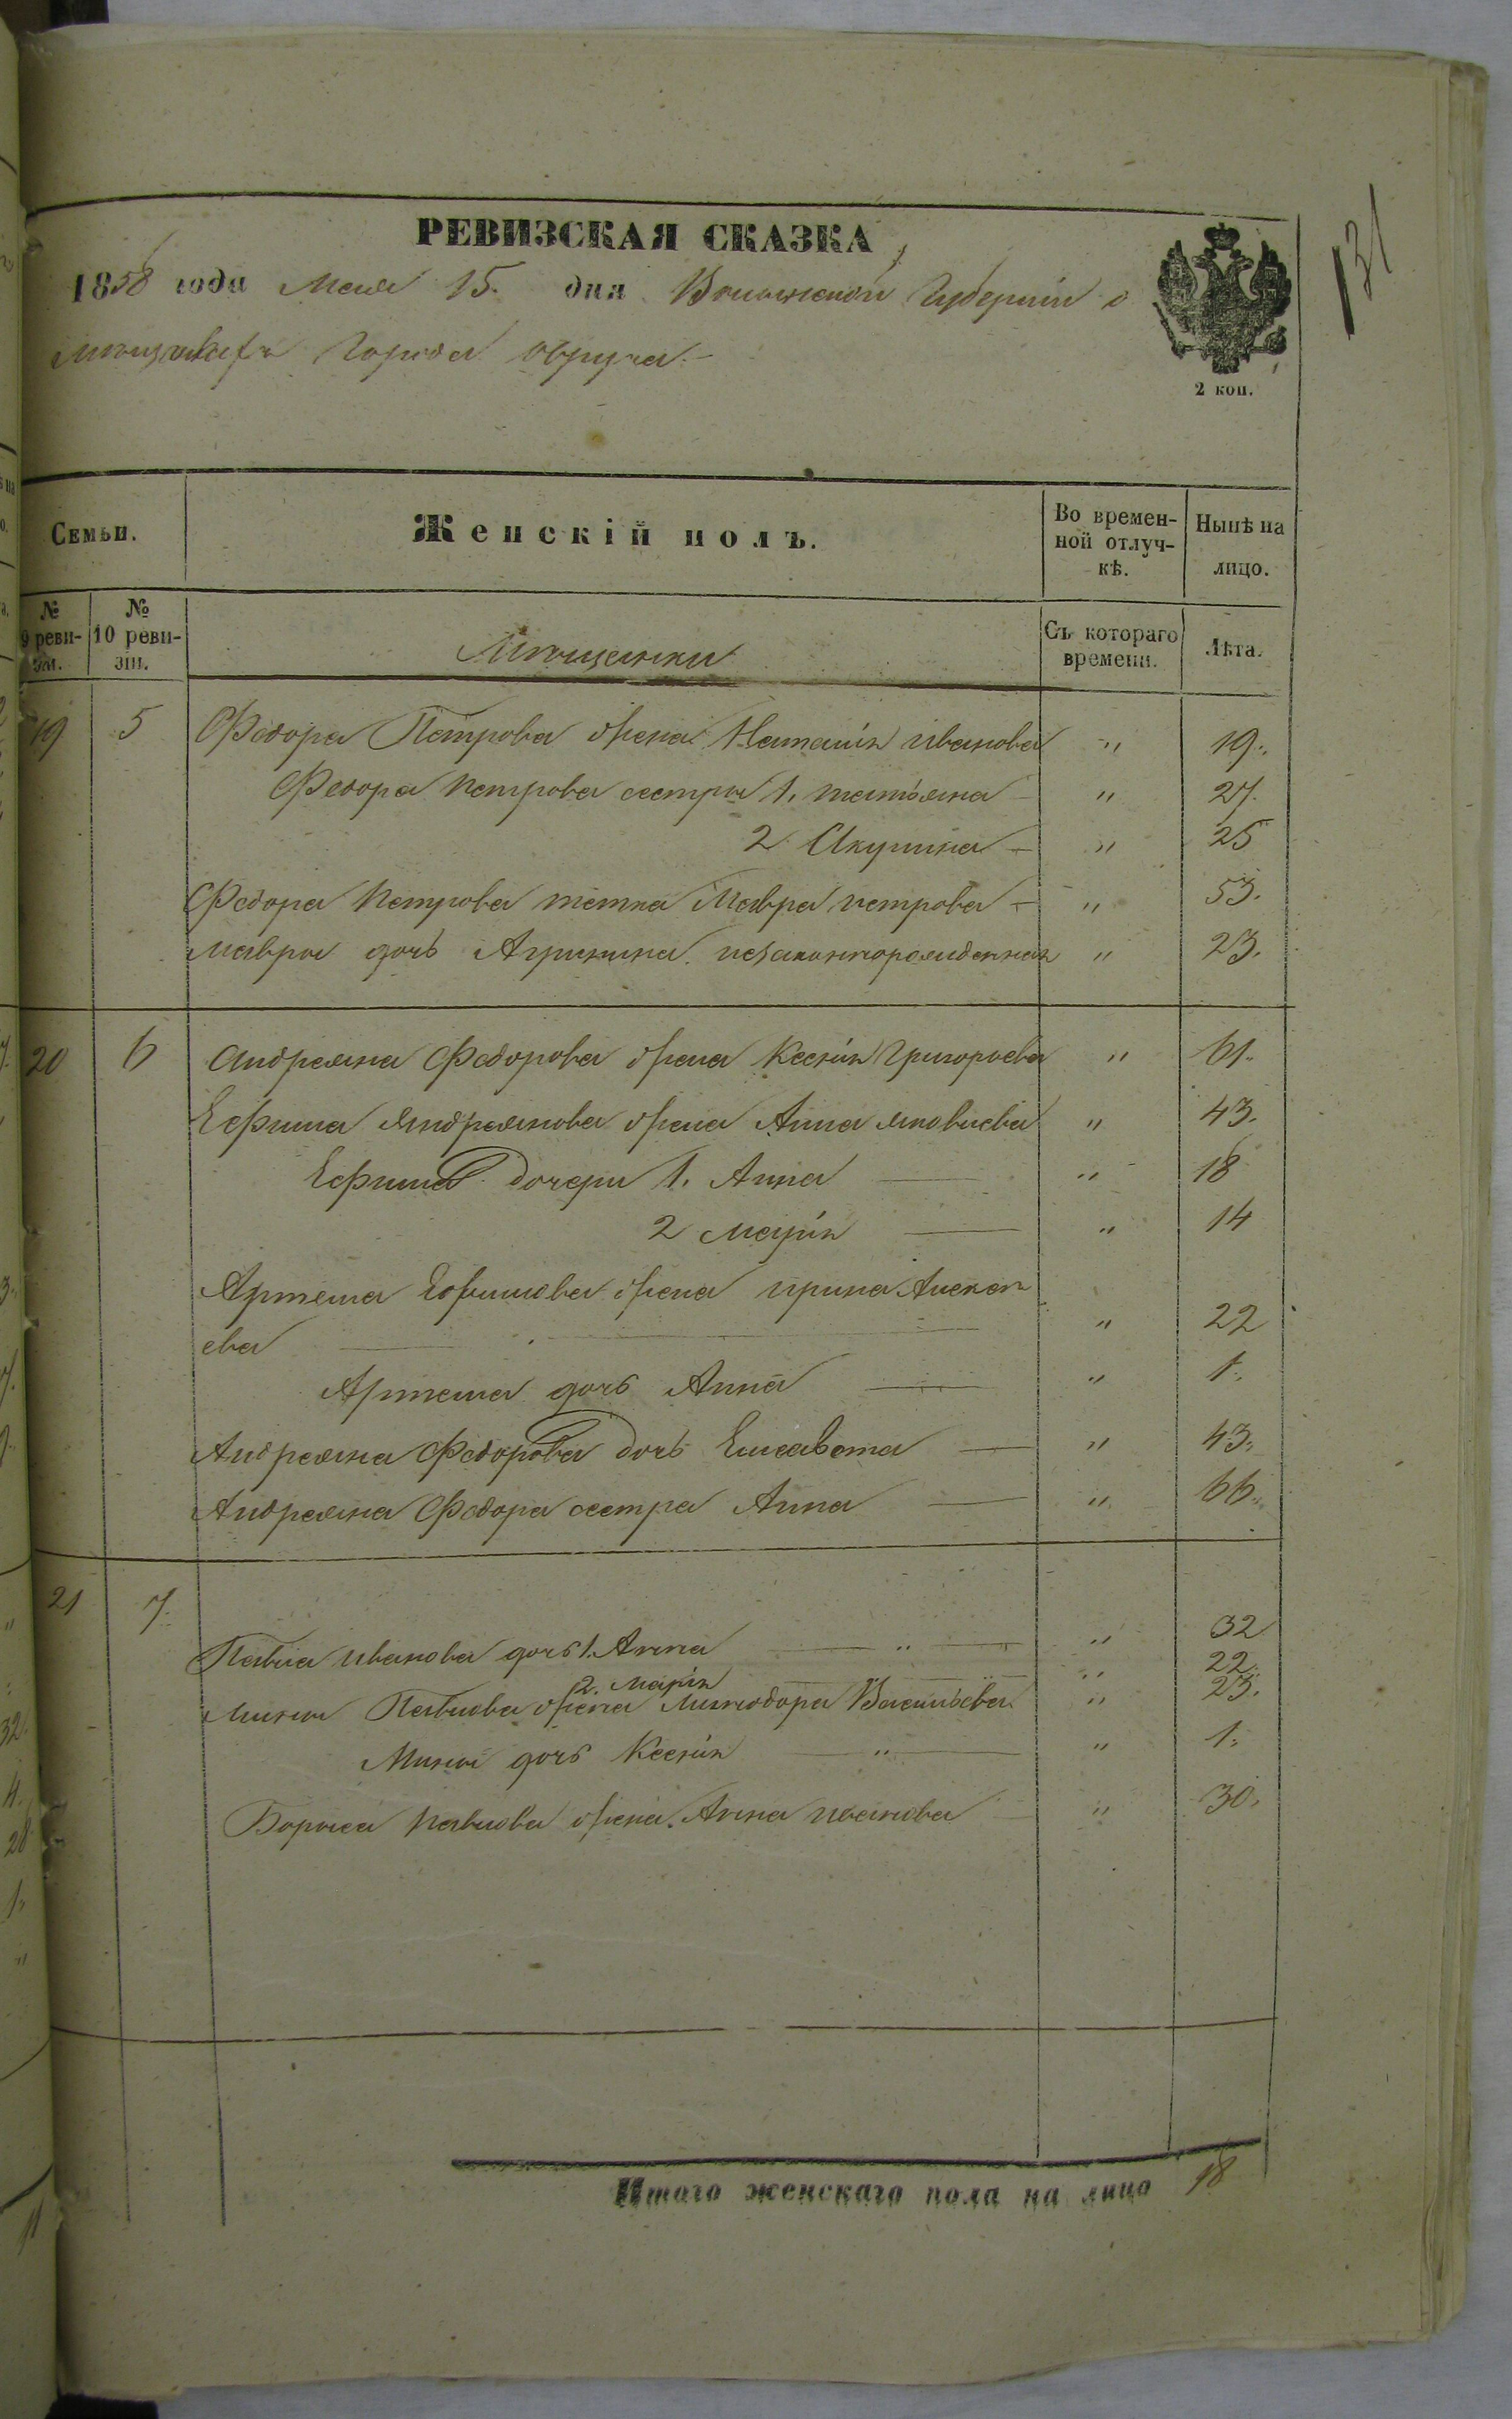 131
РЕВИЗСКАЯ СКАЗКА
1858 года Мая 15. дня Волынской Губерніи о
мещанахъ Города Овруча
2 коп.
Семьи.
Женскій полъ.
Во времен-
ной отлуч-
кѣ.
Нынѣ на
лицо.
№
9 реви-
зіи.
№
10 реви-
зіи.
Мещанки
Съ котораго
времени.
Лѣта.
19 5 Федора Петрова жена Наталія иванова " 19.
Федора петрова сестры 1. татьяна " 27.
2 Акулина " 25
Федора Петрова тетка Мавра петрова " 53.
мавры дочь Агрипина незаконнорожденная " 23.
20 6 Андреяна Федорова жена Ксенія Григорьева " 61.
Ефима Андреянова жена Анна яковлева " 43.
Ефима дочери 1. Анна " 18
2 марія " 14
Артема Ефимова жена ирина Алексѣ
ева " 22
Артема дочь Анна " 1.
Андреяна Федорова дочь Елисавета " 43.
Андреяна Федора сестра Анна " 66.
21 7.
Павла иванова дочь 1. Анна " " 32
2. Марія " 22.
мины Павлова жена Минодора Васильева " 23.
Мины дочь Ксенія " " 1.
Бориса павлова жена Анна иванова " 30.
Итого женскаго пола на лицо 18